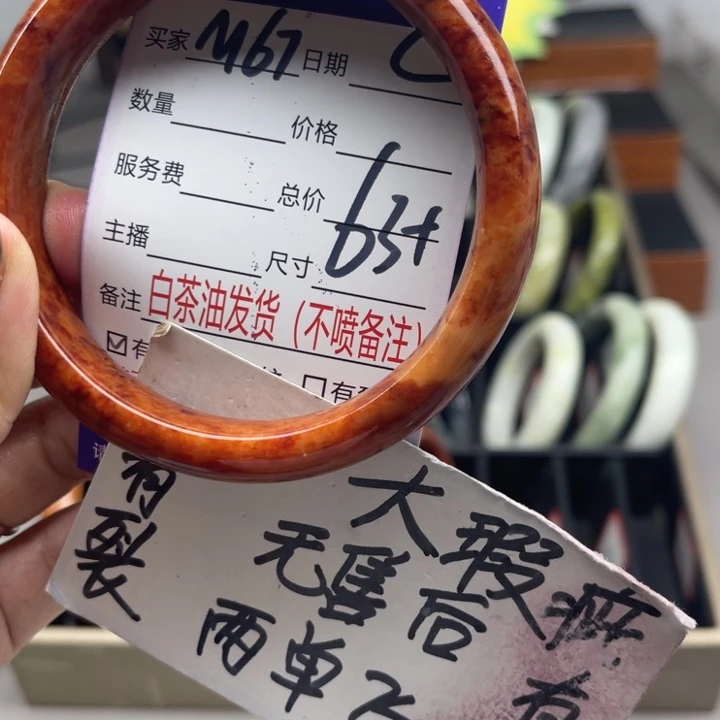 买家 M67 日期
数量 价格
服务费 总价
主播 尺寸 63+
备注 白茶油发货（不喷备注）
有
有裂
大瑕疵
无售后 有
两单